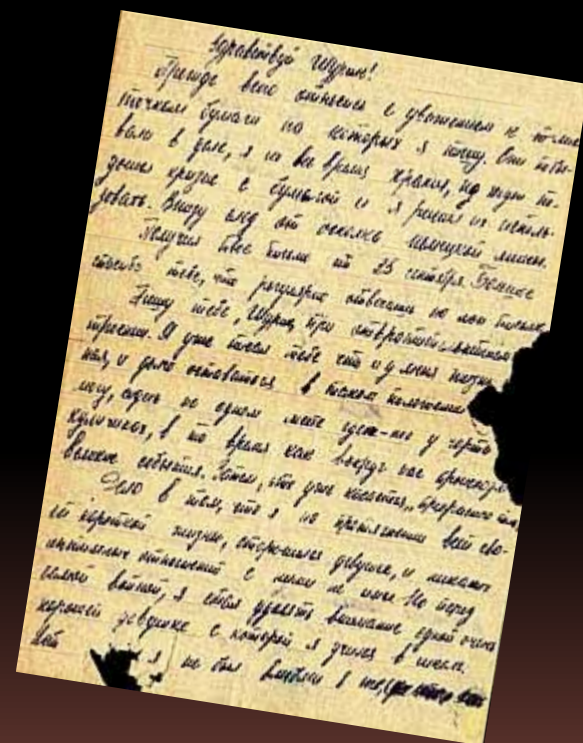 Здравствуй Шурик!
Прежде всего отнесись с уважением к
точкам бумаги на которых я пишу. Они побы-
вали в доме, я их все время хранил, но
кризис с бумагой и я решил их исполь-
зовать. Внизу след от осколка немецкой мины.
Получил твое письмо от 25 сентября. Большое
спасибо тебе, что регулярно отвечаешь на мои письма.
Пишу тебе, Шурик, при отвратительном
Я уже писал тебе что и у меня
и долго оставаться в таком положении
могу, сидеть на одном месте где-то у черта
куличках, в то время как вокруг нас происходят
великие события. Затем, что уже касается
Дело в том, что я на протяжении всей сво-
ей короткой жизни, сторонился девушек, и никаких
отношений с ними не имел. Но перед
самой войной, я стал уделять внимание одной очень
хорошей девушке с которой я учился в школе.
я не был влюблен в нее,